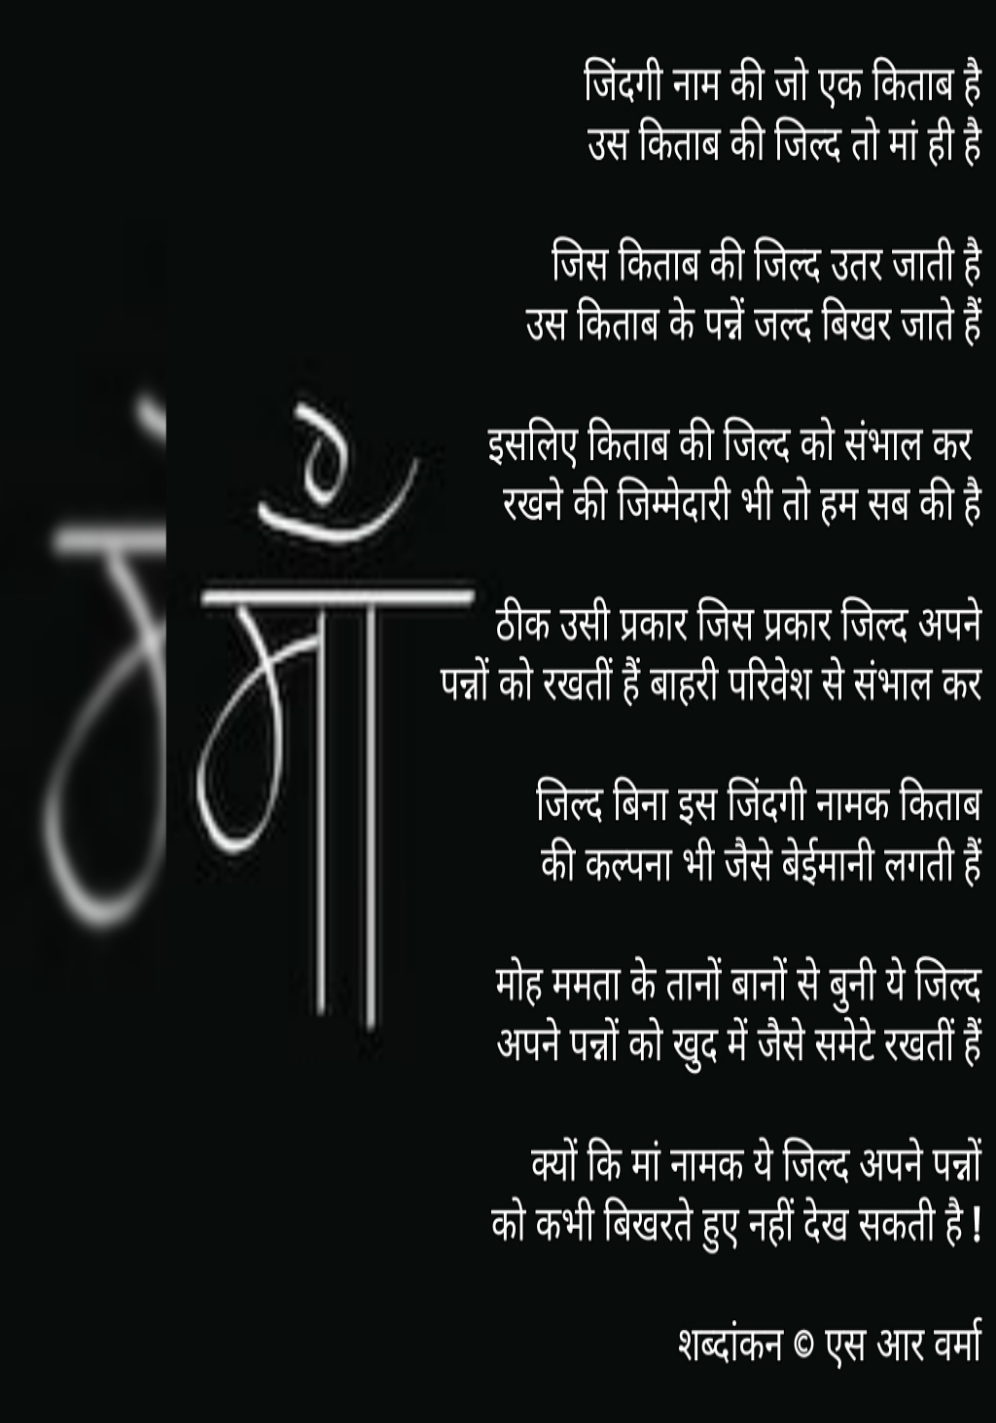 जिंदगी नाम की जो एक किताब है
उस किताब की जिल्द तो मां ही है
जिस किताब की जिल्द उतर जाती है
उस किताब के पन्नें जल्द बिखर जाते हैं
इसलिए किताब की जिल्द को संभाल कर
रखने की जिम्मेदारी भी तो हम सब की है
ठीक उसी प्रकार जिस प्रकार जिल्द अपने
पन्नों को रखतीं हैं बाहरी परिवेश से संभाल कर
जिल्द बिना इस जिंदगी नामक किताब
की कल्पना भी जैसे बेईमानी लगती हैं
मोह ममता के तानों बानों से बुनी ये जिल्द
अपने पन्नों को खुद में जैसे समेटे रखतीं हैं
क्यों कि मां नामक ये जिल्द अपने पन्नों
को कभी बिखरते हुए नहीं देख सकती है !
शब्दांकन © एस आर वर्मा
माँ